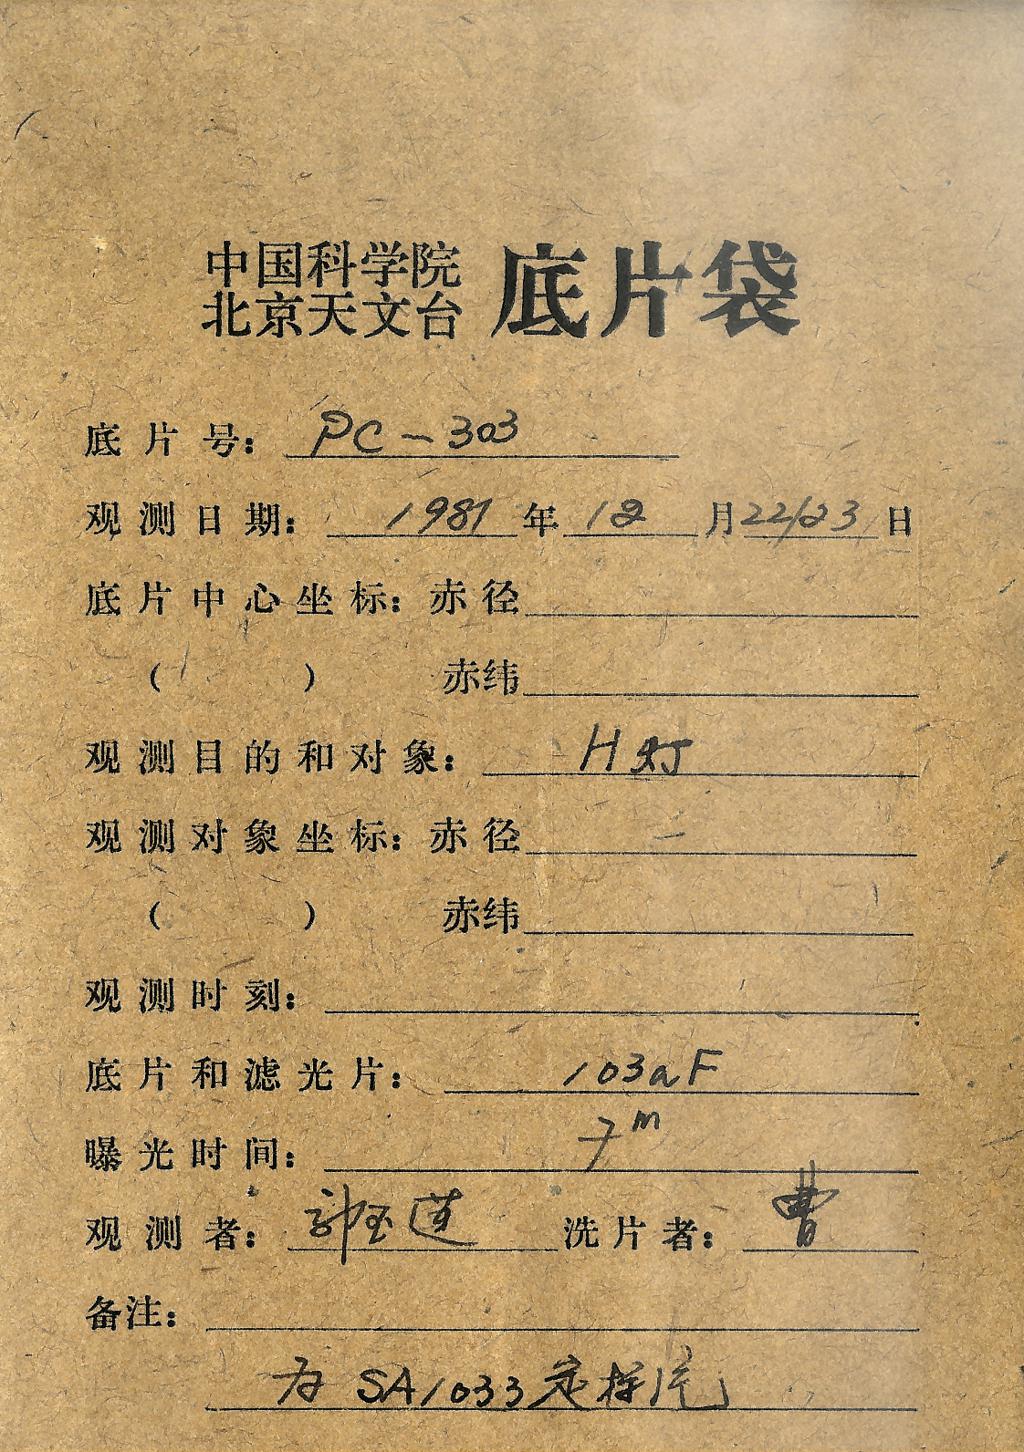 中国科学院
北京天文台 底片袋
底片号： PC-303
观测日期： 1981年12月22/23日
底片中心坐标：赤径
（ ） 赤纬
观测目的和对象： H灯
观测对象坐标：赤径
（ ） 赤纬
观测时刻：
底片和滤光片： 103aF
曝光时间： 7m
观测者： 玉莲 洗片者： 曹
备注：
为 SA1033定标片